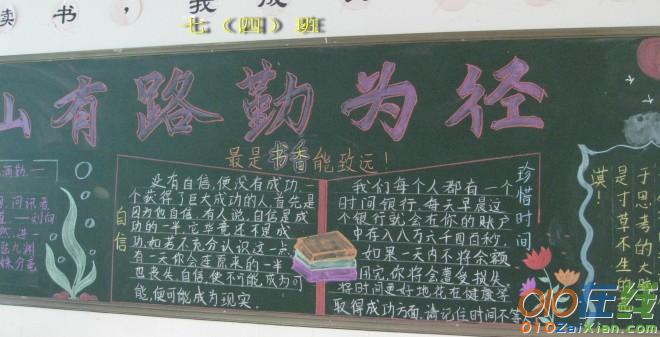 读书，我成
七（四）班
山有路勤为径
最是书香能致远！
自信
没有自信,便没有成功.一
个获得了巨大成功的人,首先是
因为他自信.有人说,自信是成
功的一半.它毕竟还不是成
功.如若不充分认识这一点
有一天你会连原来的一半
也丧失.自信,使不可能成为可
能,使可能成为现实.
珍惜时间
我们每个人都有一个
时间银行.每天早晨这
个银行就会在你的账户
中存入八万六千四百秒.
如果一天内不将余额
用完,你将会遭受损失.
将时间更好地花在健康等
取得成功方面.请记住时间不等人
于思考的大脑
是寸草不生的
漠!
010在线
010ZaiXian.com